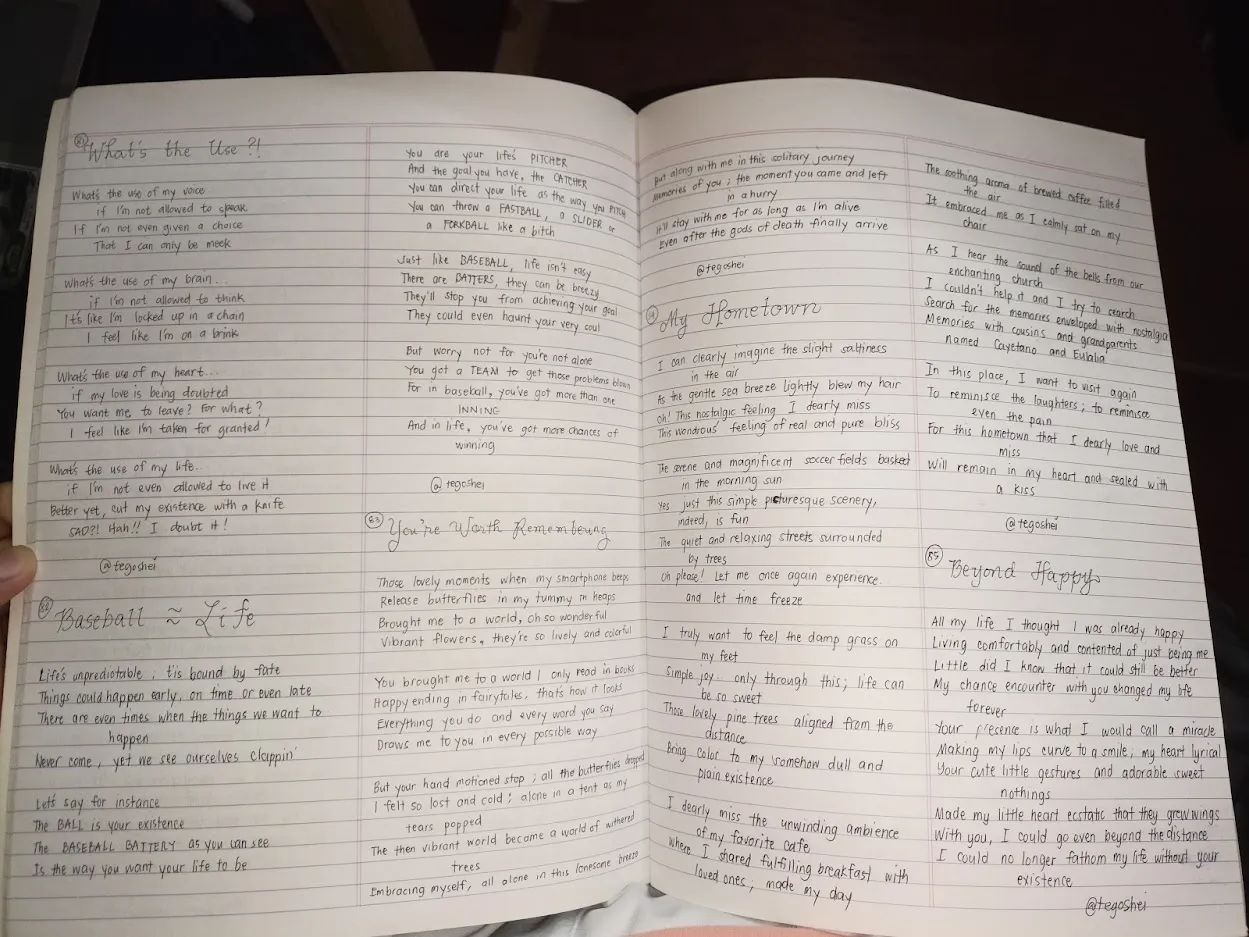 81 What's the Use?!
What's the use of my voice
if I'm not allowed to speak
If I'm not even given a choice
That I can only be meek
What's the use of my brain...
if I'm not allowed to think
It's like I'm locked up in a chain
I feel like I'm on a brink
What's the use of my heart...
if my love is being doubted
You want me to leave? For what?
I feel like I'm taken for granted!
What's the use of my life..
if I'm not even allowed to live it
Better yet, cut my existence with a knife
SAD?! Hah!! I doubt it!
@tegoshei
82 Baseball ≈ Life
Life's unpredictable; 'tis bound by fate
Things could happen early, on time or even late
There are even times when the things we want to
happen
Never come, yet we see ourselves clappin'
Let's say for instance
The BALL is your existence
The BASEBALL BATTERY as you can see
Is the way you want your life to be
You are your life's PITCHER
And the goal you have, the CATCHER
You can direct your life as the way you PITCH
You can throw a FASTBALL, a SLIDER or
a FORKBALL like a bitch
Just like BASEBALL, life isn't easy
There are BATTERS, they can be breezy
They'll stop you from achieving your goal
They could even haunt your very soul
But worry not for you're not alone
You got a TEAM to get those problems blown
For in baseball, you've got more than one
INNING
And in life, you've got more chances of
winning
@tegoshei
83 You're Worth Remembering
Those lovely moments when my smartphone beeps
Release butterflies in my tummy in heaps
Brought me to a world, oh so wonderful
Vibrant flowers, they're so lively and colorful
You brought me to a world I only read in books
Happy ending in fairytales, that's how it looks
Everything you do and every word you say
Draws me to you in every possible way
But your hand motioned stop; all the butterflies dropped
I felt so lost and cold; alone in a tent as my
tears popped
The then vibrant world became a world of withered
trees
Embracing myself, all alone in this lonesome breeze
But along with me in this solitary journey
Memories of you; the moment you came and left
in a hurry
It'll stay with me for as long as I'm alive
Even after the gods of death finally arrive
@tegoshei
84 My Hometown
I can clearly imagine the slight saltiness
in the air
As the gentle sea breeze lightly blew my hair
Oh! This nostalgic feeling I dearly miss
This wondrous feeling of real and pure bliss
The serene and magnificent soccer fields basked
in the morning sun
Yes just this simple picturesque scenery,
indeed, is fun
The quiet and relaxing streets surrounded
by trees
Oh please! Let me once again experience.
and let time freeze
I truly want to feel the damp grass on
my feet
Simple joy.. only through this; life can
be so sweet
Those lovely pine trees aligned from the
distance
Bring color to my somehow dull and
plain existence
I dearly miss the unwinding ambience
of my favorite cafe
Where I shared fulfilling breakfast with
loved ones; made my day
The soothing aroma of brewed coffee filled
the air
It embraced me as I calmly sat on my
chair
As I hear the sound of the bells from our
enchanting church
I couldn't help it and I try to search
Search for the memories enveloped with nostalgia
Memories with cousins and grandparents
named Cayetano and Eulalia
In this place, I want to visit again
To reminisce the laughters; to reminisce
even the pain
For this hometown that I dearly love and
miss
Will remain in my heart and sealed with
a kiss
@tegoshei
85 Beyond Happy
All my life I thought I was already happy
Living comfortably and contented of just being me
Little did I know that it could still be better
My chance encounter with you changed my life
forever
Your presence is what I would call a miracle
Making my lips curve to a smile; my heart lyrical
Your cute little gestures and adorable sweet
nothings
Made my little heart ecstatic that they grew wings
With you, I could go even beyond the distance
I could no longer fathom my life without your
existence
@tegoshei